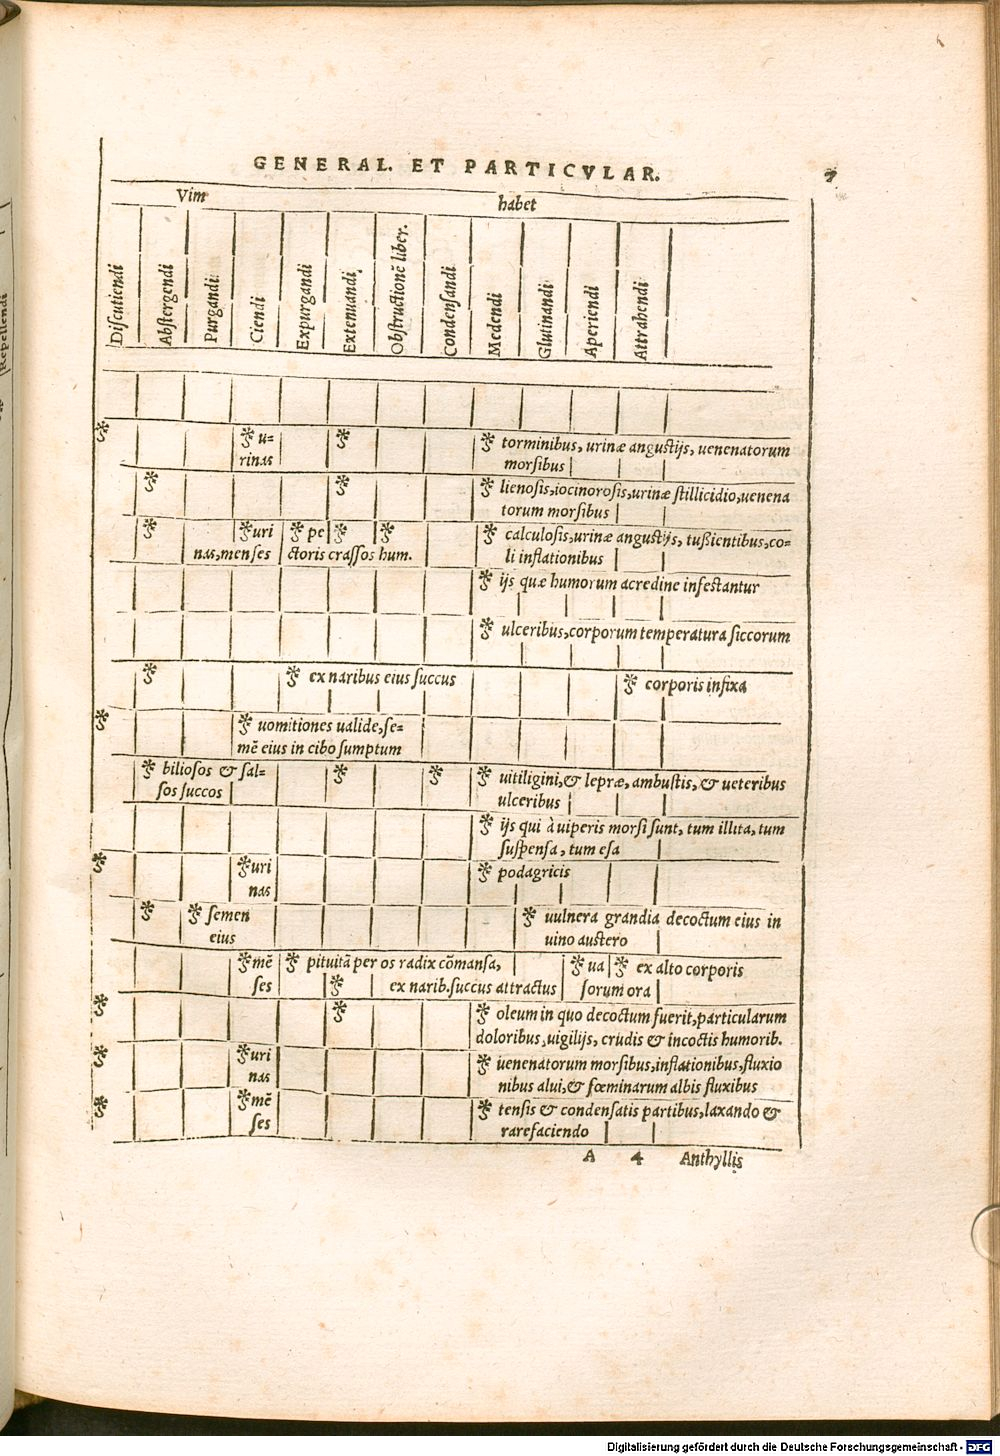 GENERAL. ET PARTICVLAR. 7
Vim habet
Repellendi
Diſcutiendi
Abſtergendi
Purgandi
Ciendi
Expurgandi
Extenuandi
Obſtructionē liber.
Condenſandi
Medendi
Glutinandi
Aperiendi
Attrahendi
* * u= * * torminibus, urinæ anguſtijs, uenenatorum
rinas morſibus
* * * lienoſis, iocinoroſis, urinæ ſtillicidio, uenena
torum morſibus
* * uri * pe * * * calculoſis, urinæ anguſtijs, tußientibus, co=
nas, menſes ctoris craſſos hum. li inflationibus
* ijs quæ humorum acredine infeſtantur
* ulceribus, corporum temperatura ſiccorum
* * ex naribus eius ſuccus * corporis infixa
* * uomitiones ualide, ſe=
mē eius in cibo ſumptum
* bilioſos & ſal= * * * uitiligini, & lepræ, ambuſtis, & ueteribus
ſos ſuccos ulceribus
* ijs qui à uiperis morſi ſunt, tum illita, tum
ſuſpenſa, tum eſa
* * uri * podagricis
nas
* * ſemen * uulnera grandia decoctum eius in
eius uino auſtero
* mē * pituitā per os radix cōmanſa, * ua * ex alto corporis
ſes * ex narib. ſuccus attractus ſorum ora
* * * oleum in quo decoctum fuerit, particularum
doloribus, uigilijs, crudis & incoctis humorib.
* * uri * uenenatorum morſibus, inflationibus, fluxio
nas nibus alui, & fœminarum albis fluxibus
* * mē * tenſis & condenſatis partibus, laxando &
ſes rarefaciendo
A 4 Anthyllis
Digitalisierung gefördert durch die Deutsche Forschungsgemeinschaft - DFG